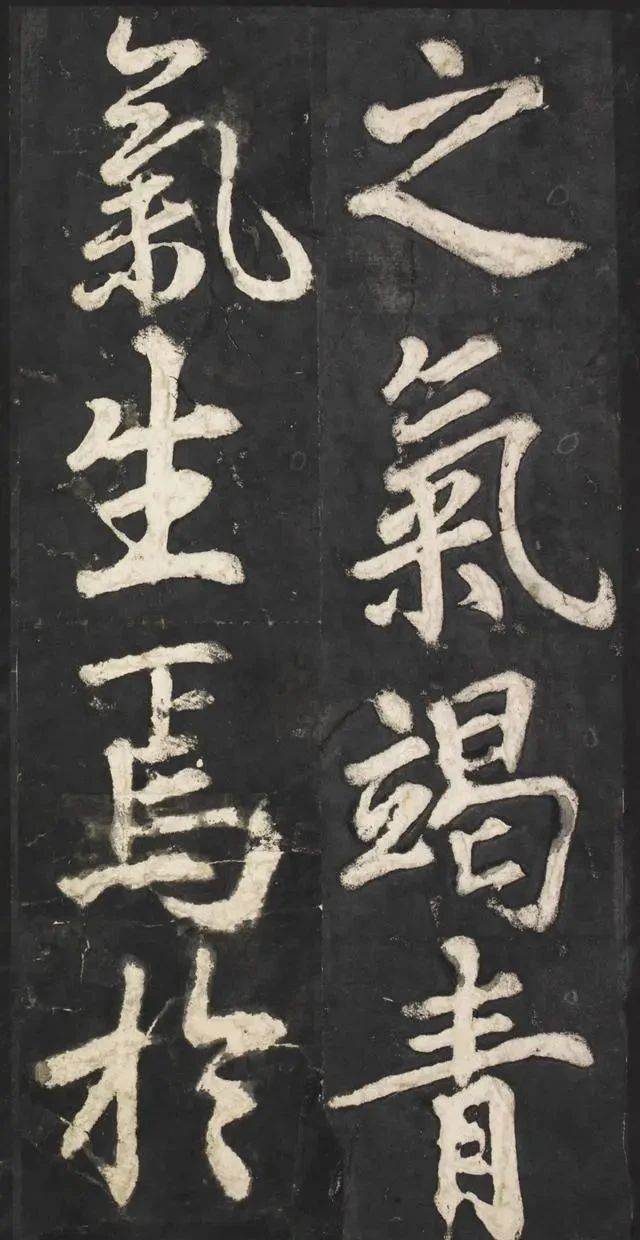 之氣竭青
氣生焉於